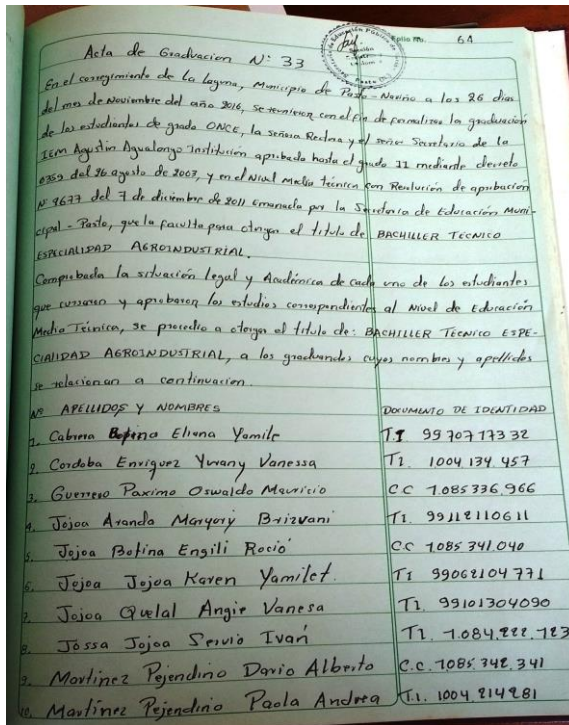 Folio No. 64
Acta de Graduacion N: 33
En el corregimiento de La laguna, Municipio de Pasto-Nariño a los 26 dias
del mes de Noviembre del año 2016, se reunieron con el fin de formalizar la graduación
de los estudiantes de grado ONCE, la señora Rectora y el señor Secretario de la
IEM Agustin Agualongo Institución aprobada hasta el grado 11 mediante decreto
0359 del 26 agosto de 2003, y en el Nivel Media técnica con Resolución de aprobación
Nº 2677 del 7 de diciembre de 2011 Emanada por la Secretaria de Educación Muni-
cipal - Pasto, que la faculta para otorgar el titulo de BACHILLER TECNICO
ESPECIALIDAD AGROINDUSTRIAL.
Comprobada la situación legal y Académica de cada uno de los estudiantes
que cursaron y aprobaron los estudios correspondientes al Nivel de Educación
Media Técnica, se procedio a otorgar el titulo de: BACHILLER TECNICO ESPE-
CIALIDAD AGROINDUSTRIAL, a los graduandos cuyos nombres y apellidos
se relacionan a continuacion.
Nº APELLIDOS Y NOMBRES DOCUMENTO DE IDENTIDAD
1. Cabrera Botina Eliana Yamile T.I 99707173 32
2. Cordoba Enriquez Yurany Vanessa TI. 1004.134.457
3. Guerrero Paximo Oswaldo Mauricio C.C 1.085336.966
4. Jojoa Aranda Maryory Brizvani TI. 99112110611
5. Jojoa Botina Engili Rocio C.C 1.085 341.040
6. Jojoa Jojoa Karen Yamilet. TI 99062104771
7. Jojoa Quelal Angie Vanesa TI. 99101304090
8. Jossa Jojoa Servio Ivan TI. 1.084.222.723
9. Martinez Pejendino Dario Alberto C.C. 1085.342.341
10. Martinez Pejendino Paola Andrea T.I. 1004.214281